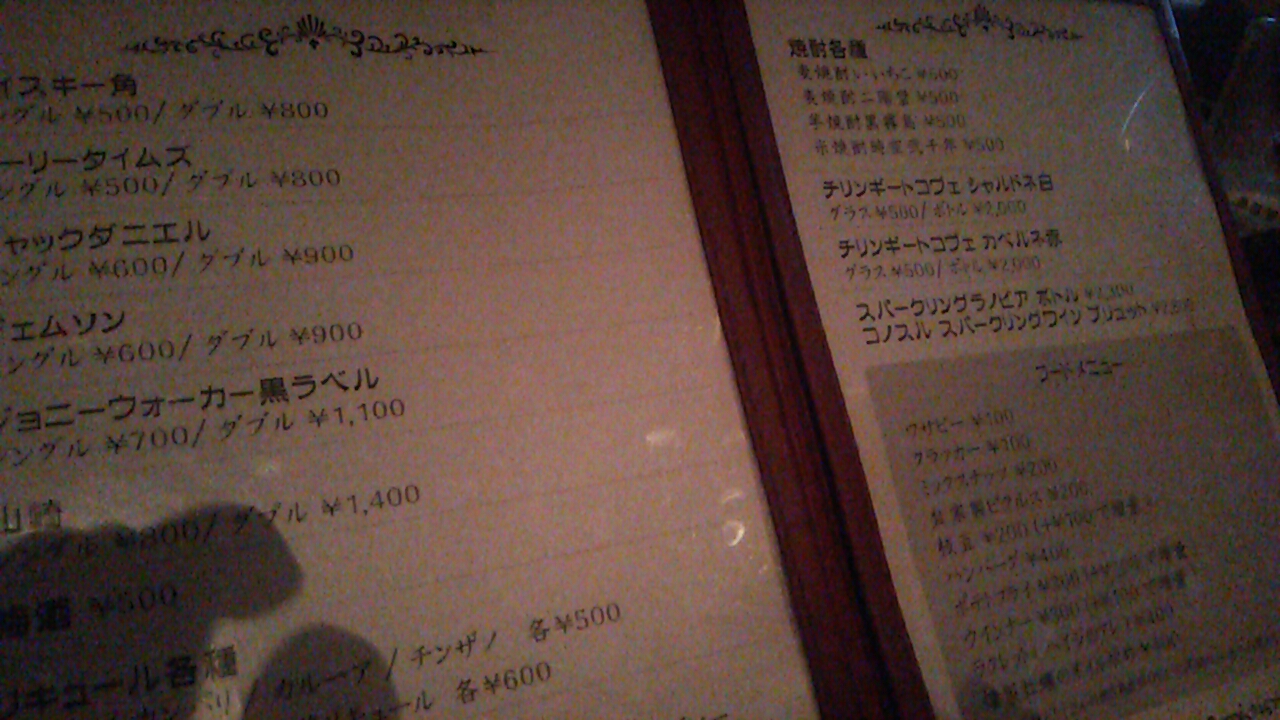 イスキー角
ングル ¥500/ ダブル ¥800
ーリータイムズ
ングル ¥500/ ダブル ¥800
ャックダニエル
ングル ¥600/ ダブル ¥900
ェムソン
ングル ¥600/ ダブル ¥900
ジョニーウォーカー黒ラベル
シングル ¥700/ ダブル ¥1,100
山崎
ングル ¥800/ ダブル ¥1,400
梅酒 ¥500
リキュール各種
カルーア / チンザノ 各¥500
リキュール 各¥600
焼酎各種
麦焼酎いいちこ ¥500
麦焼酎二階堂 ¥500
芋焼酎黒霧島 ¥500
米焼酎 ¥500
チリンギートコヴェ シャルドネ白
グラス ¥500/ ボトル ¥2,000
チリンギートコヴェ カベルネ赤
グラス ¥500/ ボトル ¥2,000
スパークリングラノビア ボトル
コノスル スパークリングワイン ブリュット
フードメニュー
ワサビー ¥100
クラッカー ¥100
ミックスナッツ ¥200
自家製ピクルス ¥200
枝豆 ¥200 (+¥100で増量)
ハンバーグ ¥400
ポテトフライ
ウインナー ¥300